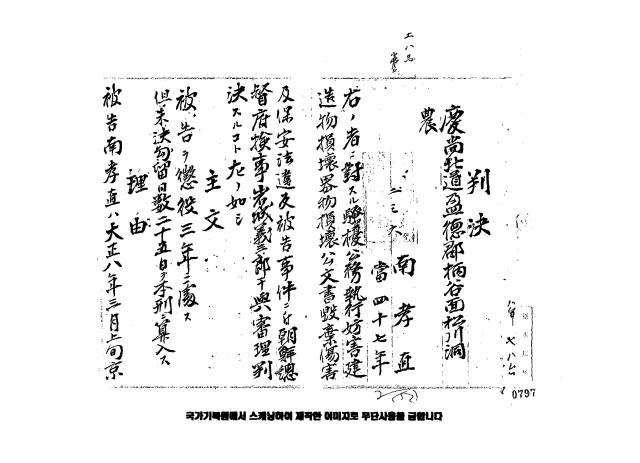 判決
慶尚北道盈德郡柄谷面松川洞
農
南孝直
當四十七年
右ノ者ニ對スル騷擾公務執行妨害建
造物損壞器物損壞公文書毀棄傷害
及保安法違反被告事件ニ付朝鮮總
督府檢事岩城義三郎干與審理判
決スルコト左ノ如シ
主文
被告ヲ懲役三年ニ處ス
但未決勾留日數二十五日ヲ本刑ニ算入ス
理由
被告南孝直ハ大正八年三月上旬京
0797
국가기록원에서 스캐닝하여 제작한 이미지로 무단사용을 금합니다